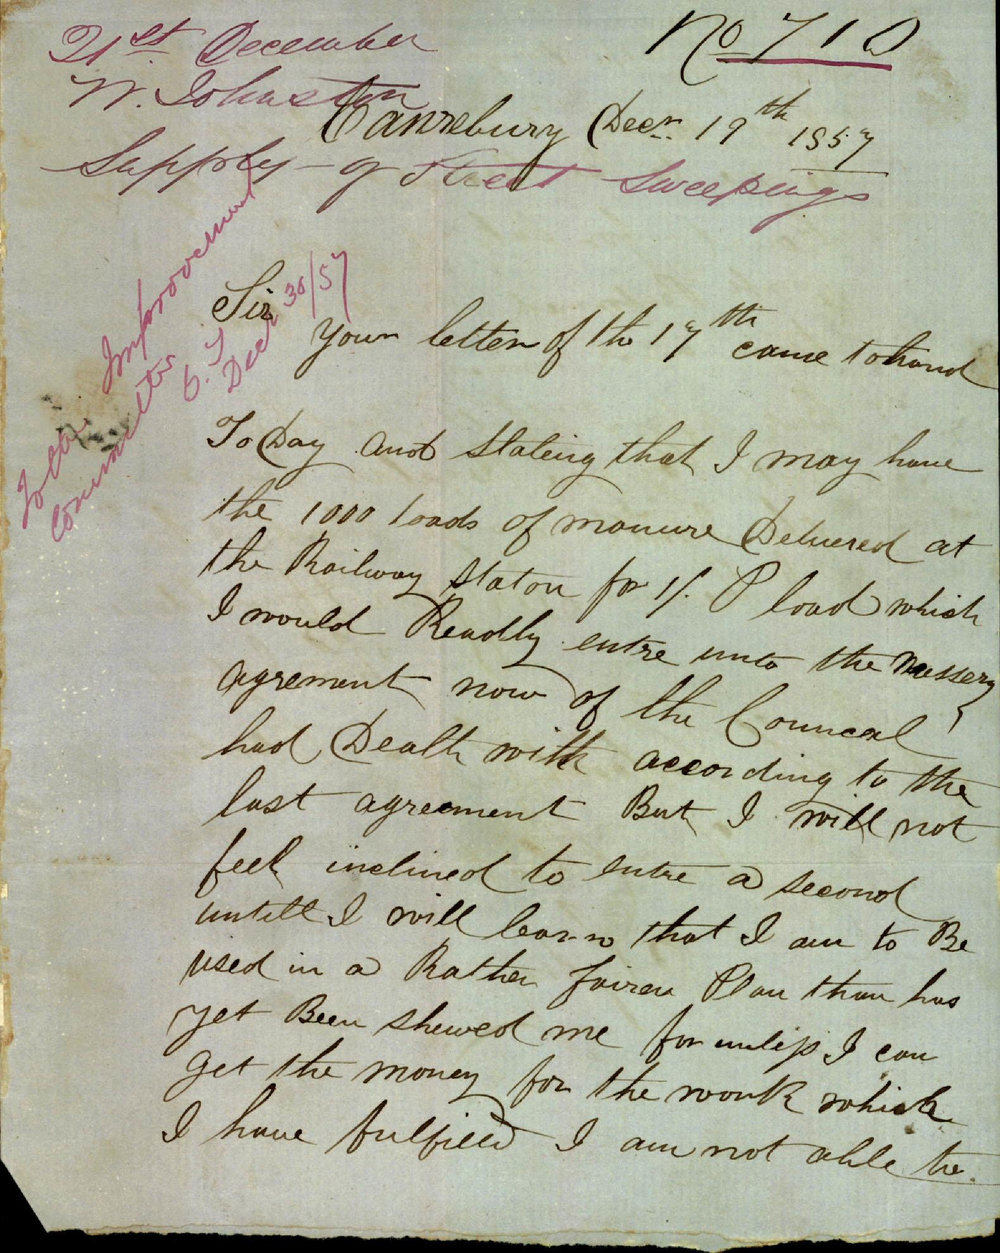 21st December
No 710
W. Johnston
Canrebury Decr. 19th 1857
Supply of Street Sweepings
To the Improvement
Committee
Decr 30/57
Sir
Your letter of the 17th came to hand
To Day and Stateing that I may have
the 1000 loads of manure Delivered at
the Railway Staton for 1/. P load which
I would Readly entre unto the Nessery
agrement now if the Councel
had Dealt with according to the
last agreement But I will not
feel inclined to entre a second
untill I will learn that I am to Be
used in a Rather fairer Plan than has
yet Been shewed me for unless I can
get the money for the work which
I have fulfiled I am not able to